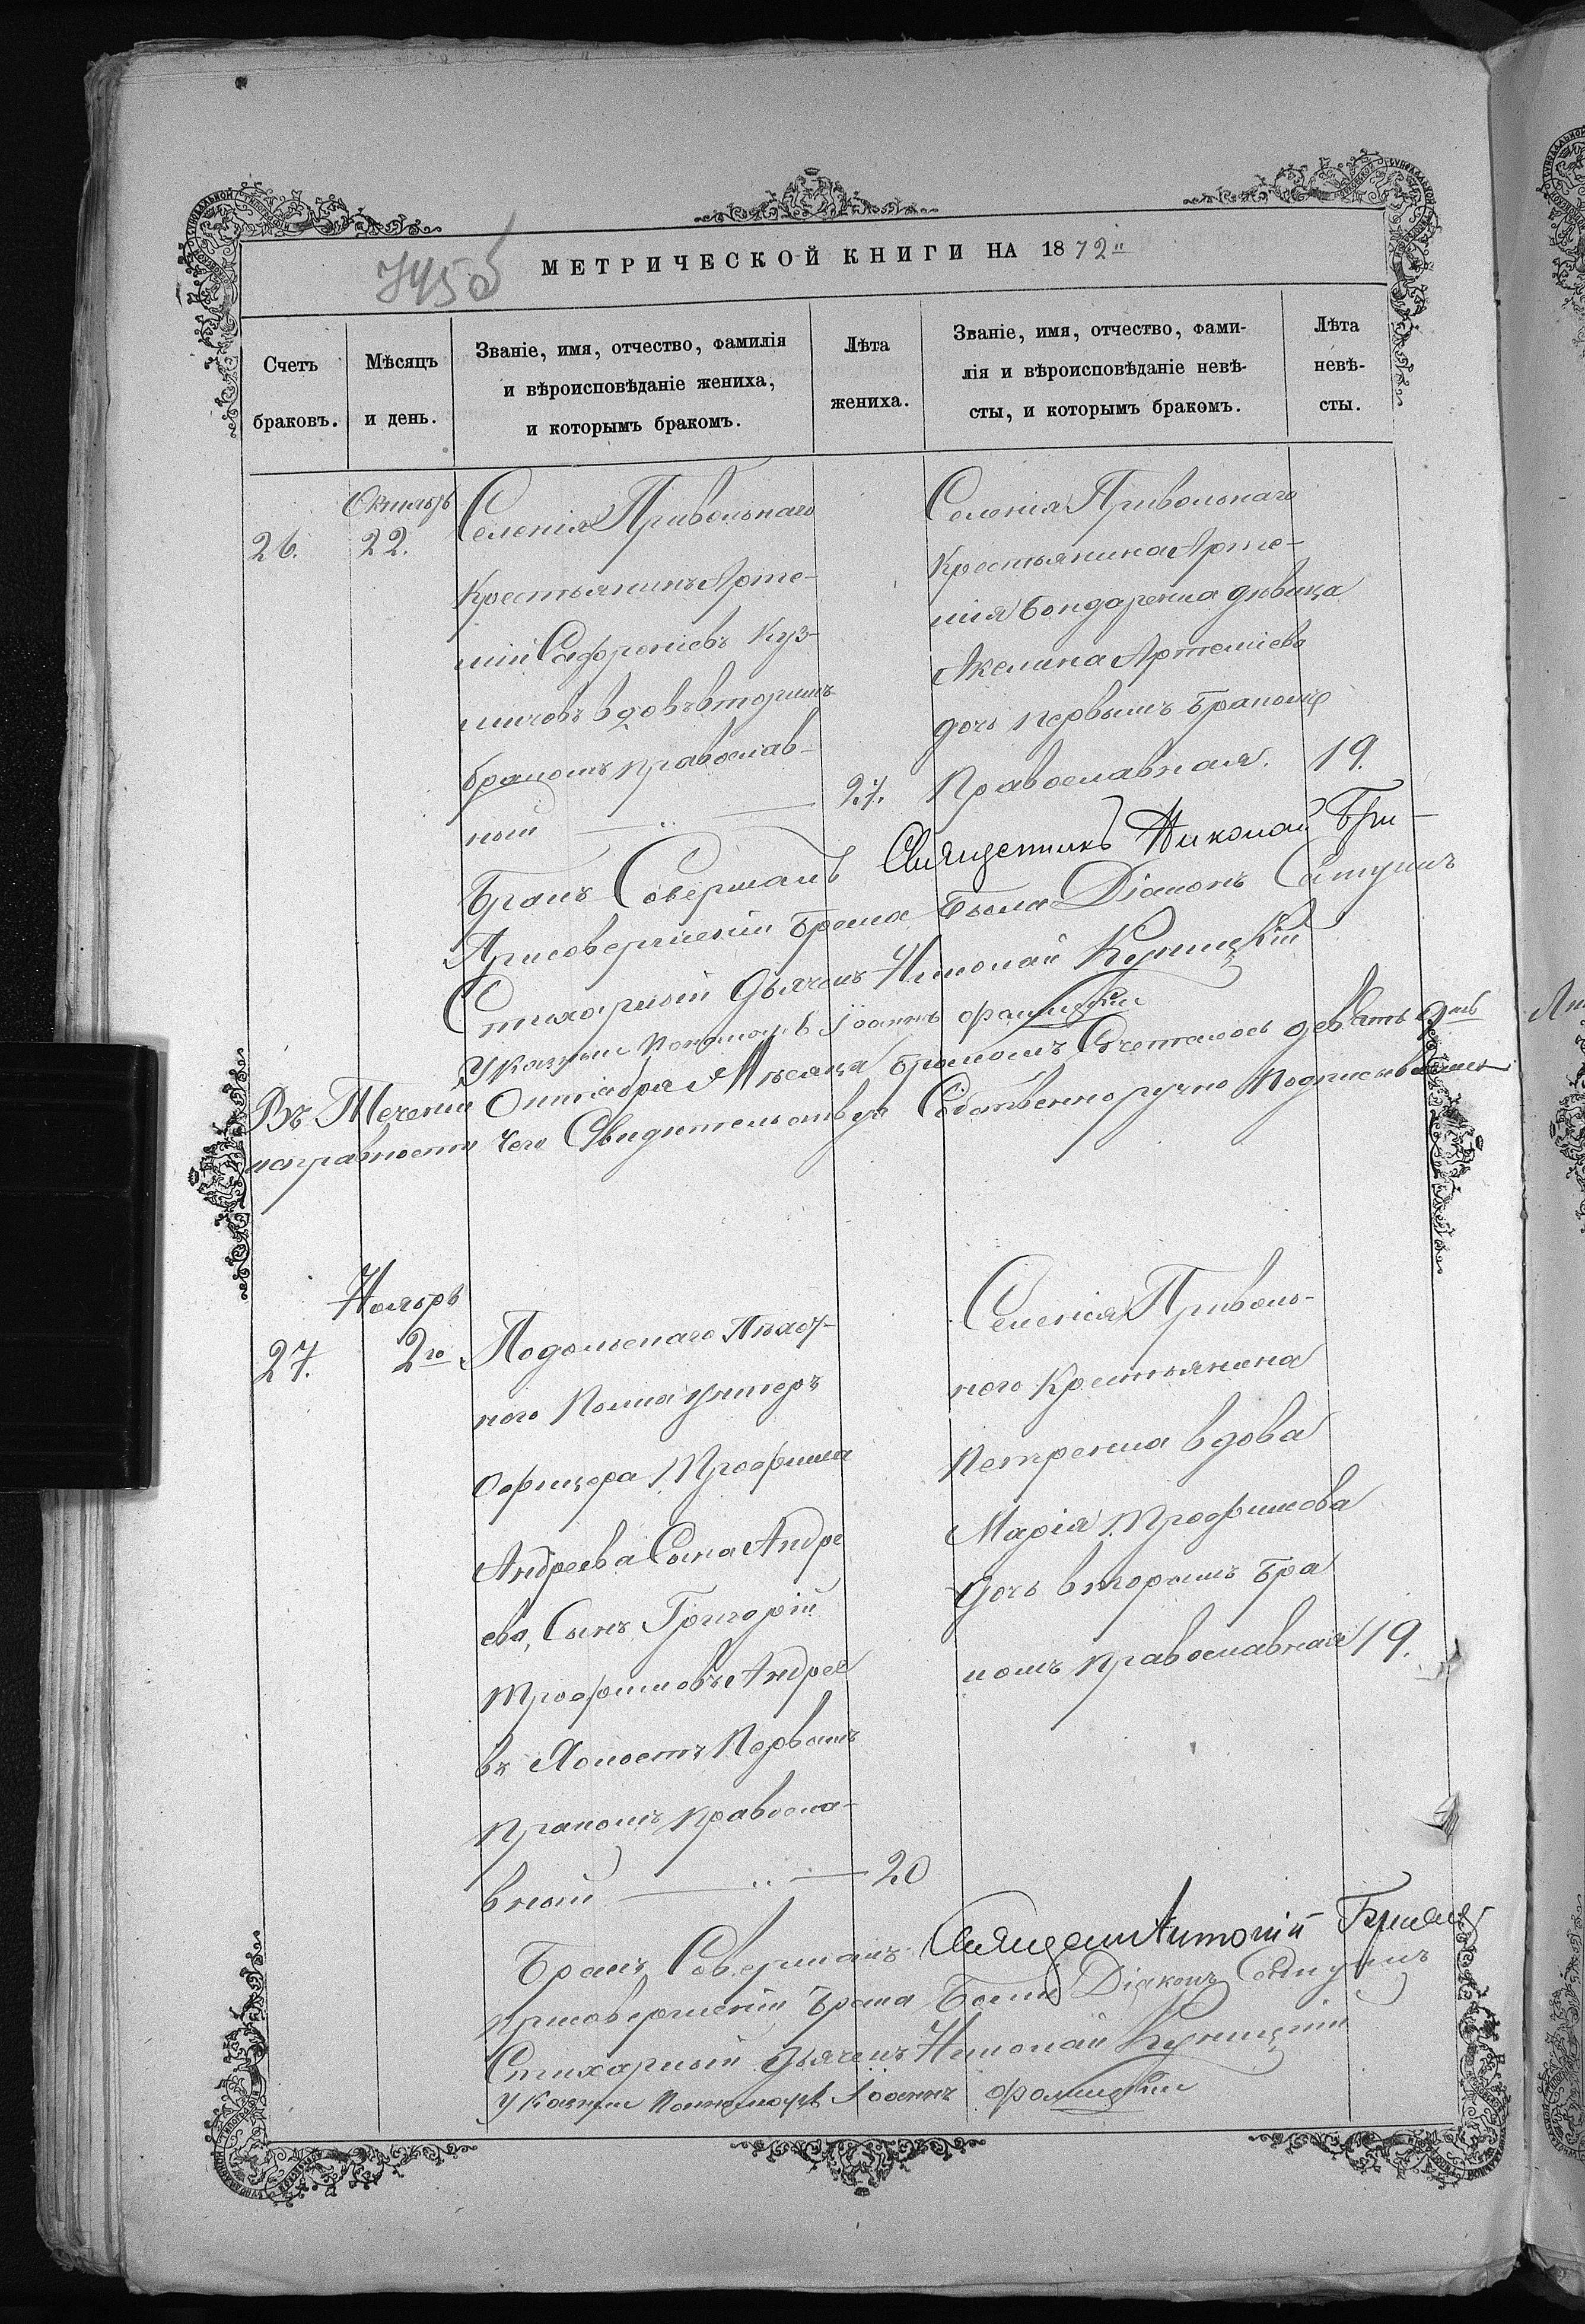 745 об
МЕТРИЧЕСКОЙ КНИГИ НА 1872
Счетъ браковъ.
Мѣсяцъ и день.
Званіе, имя, отчество, фамилія
и вѣроисповѣданіе жениха,
и которымъ бракомъ.
Лѣта жениха.
Званіе, имя, отчество, фами-
лія и вѣроисповѣданіе невѣ-
сты, и которымъ бракомъ.
Лѣта невѣ-
сты.
26.
Октябрь
22.
Селенія Привольнаго
Крестьянинъ Арте-
мій Софроніевъ Куз-
мичовъ вдовъ вторымъ
бракомъ православ-
ный
27.
Селенія Привольнаго
Крестьянина Арте-
мія Бондаренка дѣвица
Акелина Артеміева
дочь первымъ бракомъ
Православная.
19.
Бракъ Совершалъ Священникъ Николай Гри-
Присовершеніи брака были Діаконъ
Стихарный Дьячекъ Николай Куницкій
Указный Пономарь Іоаннъ
Въ Теченіи Октября Мѣсяца бракомъ Сочеталось девять
исправности чего Свидѣтельствуя Собственноручно Подписываемся
27.
Ноябрь
2го
Подольскаго Пѣхот-
ного Полка унтеръ
Офицера Трофима
Андреева Сына Андре
ева, Сынъ Григорій
Трофимовъ Андрее
въ Холостъ Первымъ
бракомъ православ-
вный
20
Селенія Приволь-
ного Крестьянина
Петренка вдова
Марія Трофимова
дочь вторымъ бра
комъ православная
19.
Бракъ Совершалъ Священ Антоній
присовершеніи брака были Діаконъ
Стихарный Дьячекъ Николай Куницкій
указный Пономарь Іоаннъ